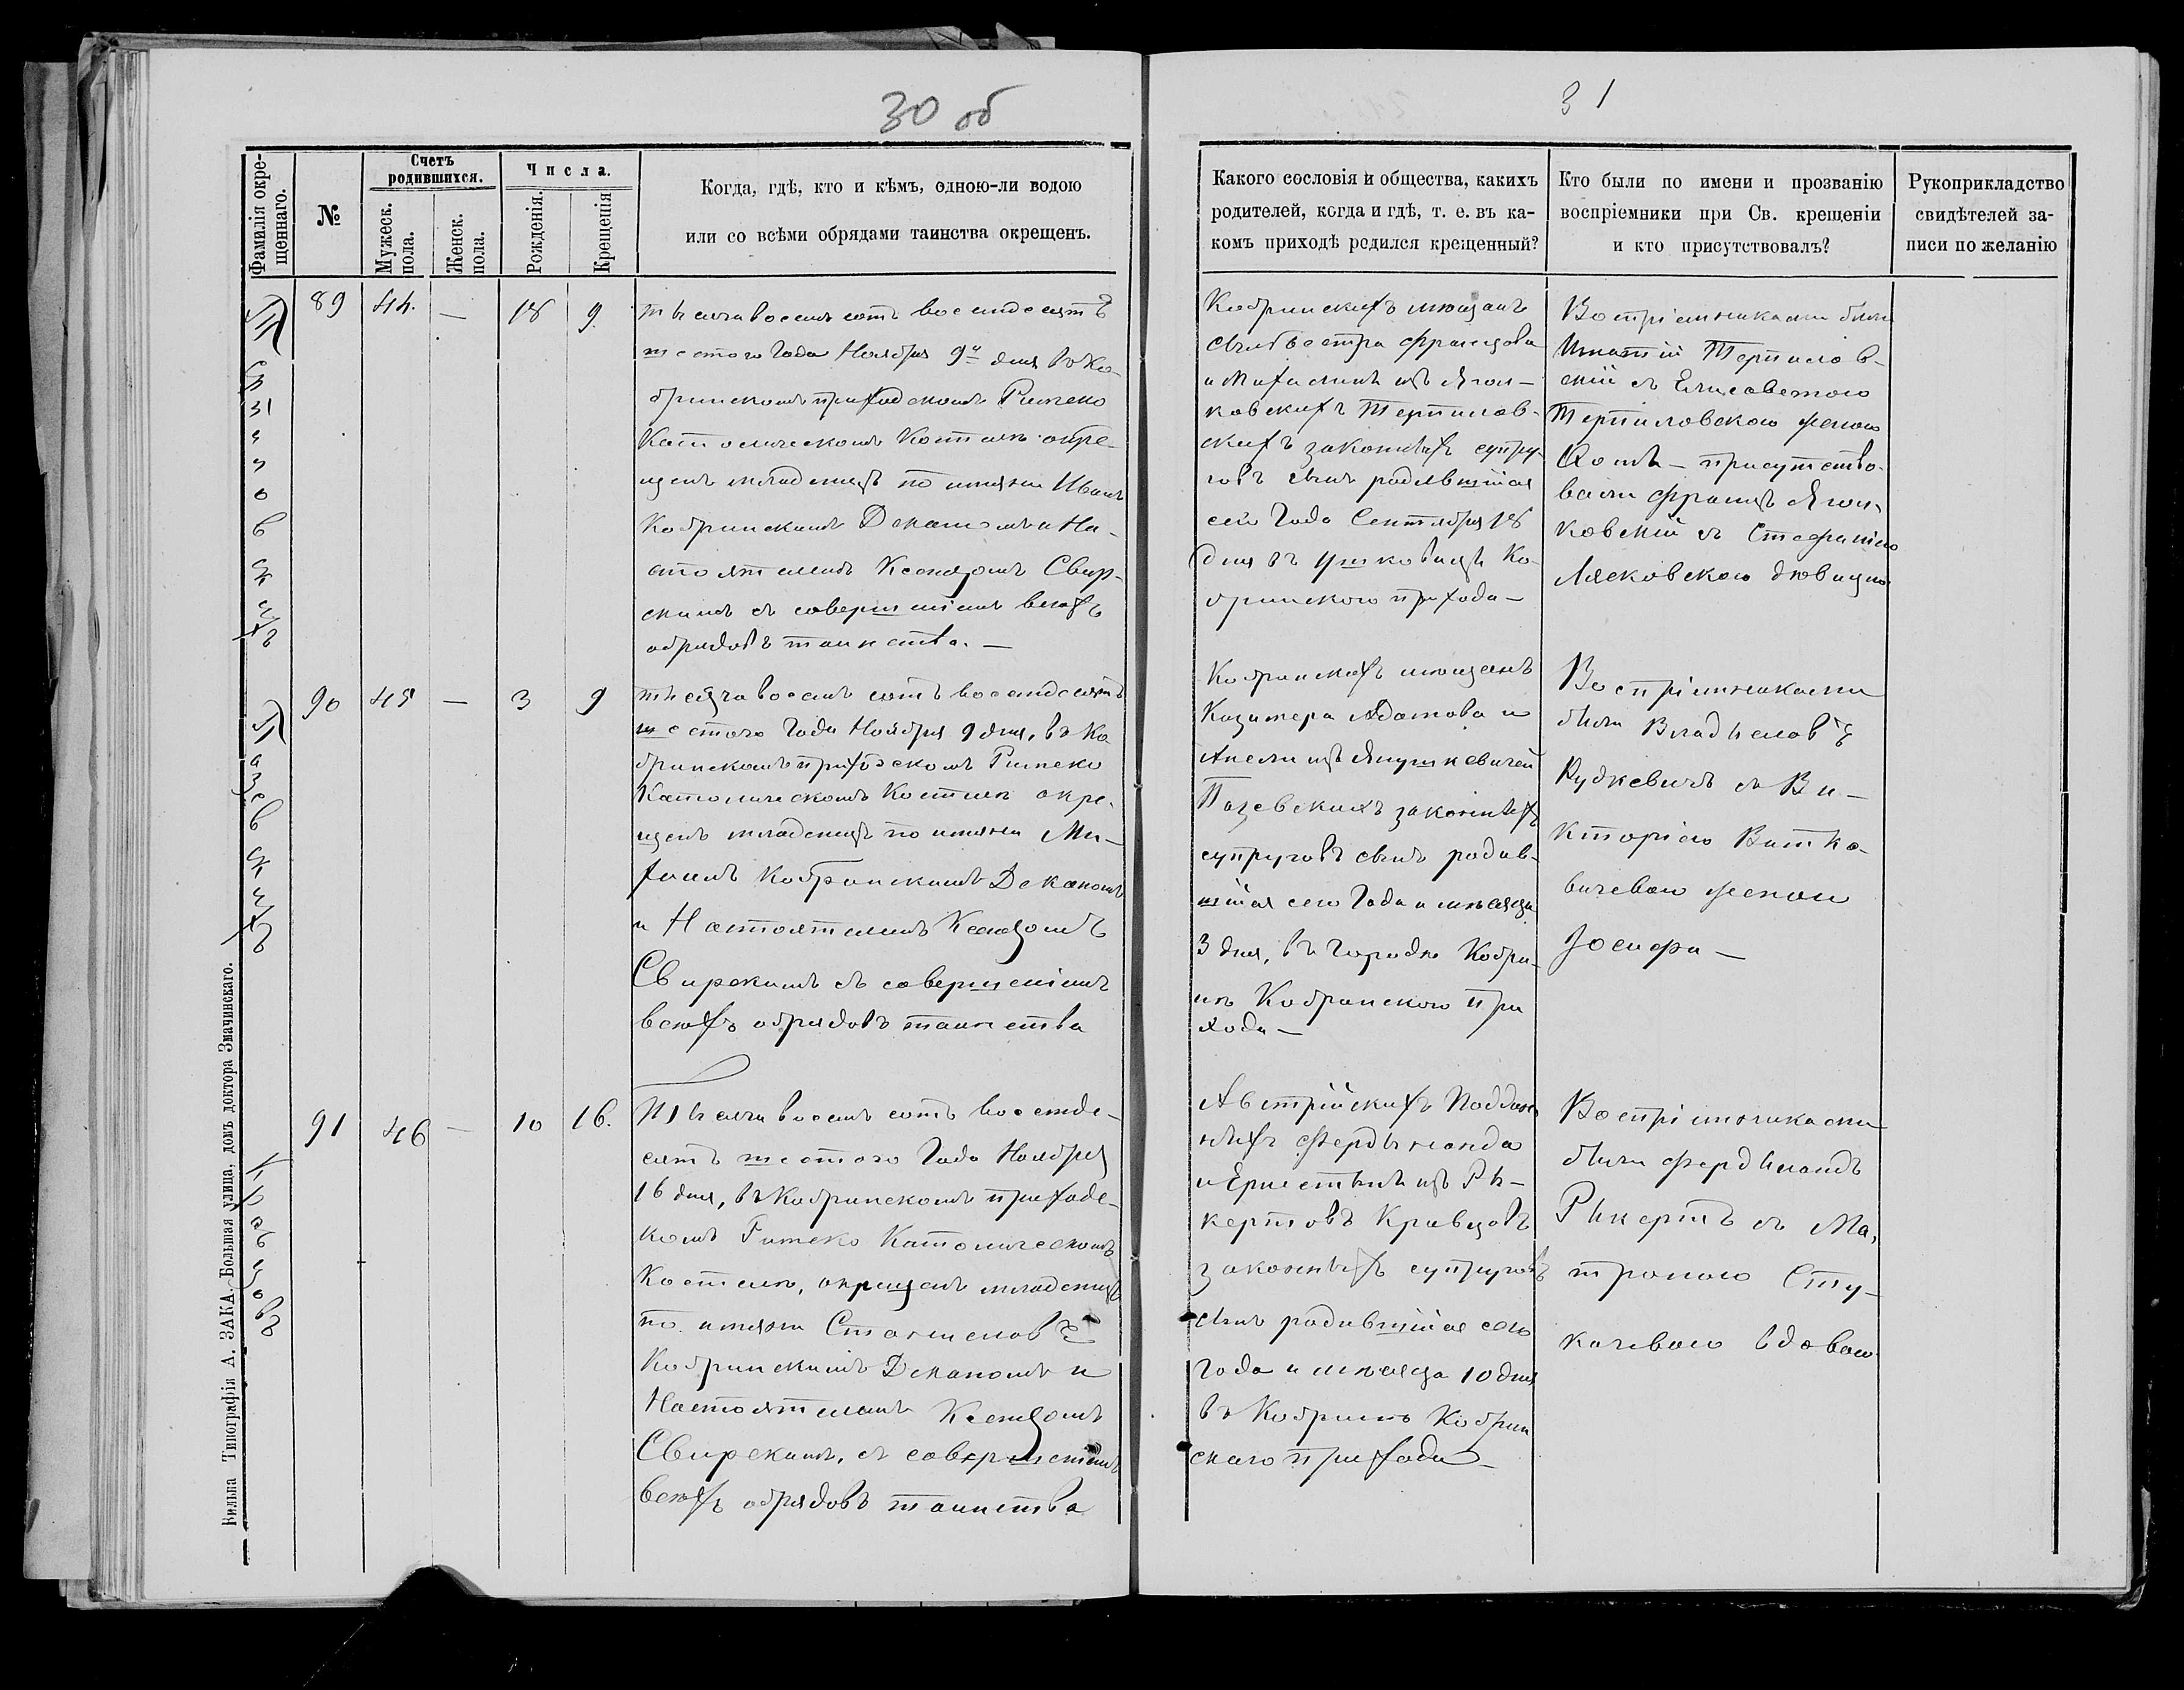 30 об
Фамилія окре-
щеннаго.
№
Счетъ
родившихся.
Мужеск.
пола.
Женск.
пола.
Числа.
Рожденія.
Крещенія
Когда, гдѣ, кто и кѣмъ, одною-ли водою
или со всѣми обрядами таинства окрещенъ.
89 44. — 18 9.
тысяча восемь сотъ восемдесятъ
шестого Года Ноября 9го дня въ Ко-
бринскомъ приходскомъ Римско
Католическомъ Костелѣ окре-
щенъ младенецъ по имяни Иванъ
Кобринскимъ Деканомъ и На-
стоятелемъ Ксендзомъ Свир-
скимъ съ совершеніемъ всѣхъ
обрядовъ таинства. —
Пазевскихъ
90 45 — 3 9
тысяча восемь сотъ восемдесятъ
шестого Года Ноября 9 дня, въ Ко
бринскомъ приходскомъ Римско
Католическомъ Костелѣ окре-
щенъ младенецъ по имяни Ми-
хаилъ Кобринскимъ Деканомъ
и Настоятелемъ Ксендзомъ
Свирскимъ съ совершеніемъ
всѣхъ обрядовъ таинства
Кравцовъ
91 46 — 10 16.
Тысяча восемь сотъ восемде-
сятъ шестого Года Ноября
16 дня, въ Кобринскомъ приходс-
комъ Римско Католическомъ
Костелѣ, окрещенъ младенецъ
по имяни Станиславъ
Кобринскимъ Деканомъ и
Настоятелемъ Ксендзомъ
Свирскимъ, съ совершеніемъ
всѣхъ обрядовъ таинства
Вильна Типографія А. ЗАКА. Большая улица, домъ доктора Змачинскаго.
31
Какого сословія и общества, какихъ
родителей, когда и гдѣ, т. е. въ ка-
комъ приходѣ родился крещенный?
Кто были по имени и прозванію
воспріемники при Св. крещеніи
и кто присутствовалъ?
Рукоприкладство
свидѣтелей за-
писи по желанію
Кобринскихъ мѣщанъ
Сильвестра Францова
и Михалины изъ Ягол-
ковскихъ Терпилов-
скихъ законныхъ супру-
говъ сынъ родившійся
сего Года Сентября 18
дня въ Ко-
бринского прихода —
Воспріемниками были
Игнатій Терпилов-
скій съ Елисаветою
Терпиловскою женою
присутство-
вали Францъ Ягол-
ковскій съ Стефаніею
Лясковскою дѣвицею
Кобринскихъ мѣщанъ
Казимера Адамова и
Анели изъ Янушкевичей
Пазевскихъ законныхъ
супруговъ сынъ родив-
шійся сего Года и мѣсяца
3 дня, въ городѣ Кобри-
нѣ Кобринского при
хода —
Воспріемниками
были Владыславъ
Рудкевичъ съ Ви-
кторіею Витко-
вичевою женою
Іосифа —
Австрійскихъ Поддан-
ныхъ Фердынанда
и Ернестыны изъ Ры-
кертовъ Кравцовъ
законныхъ супруговъ
сынъ родившійся сего
года и мѣсяца 10 дня
въ Кобринѣ Кобрин
скаго прихода —
Воспріемниками
были Фердынандъ
Рыкертъ съ Ма-
троною Сту-
качевою вдовою